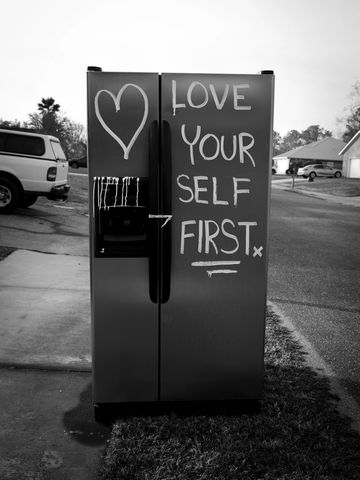 LOVE
YOUR
SELF
FIRST.x